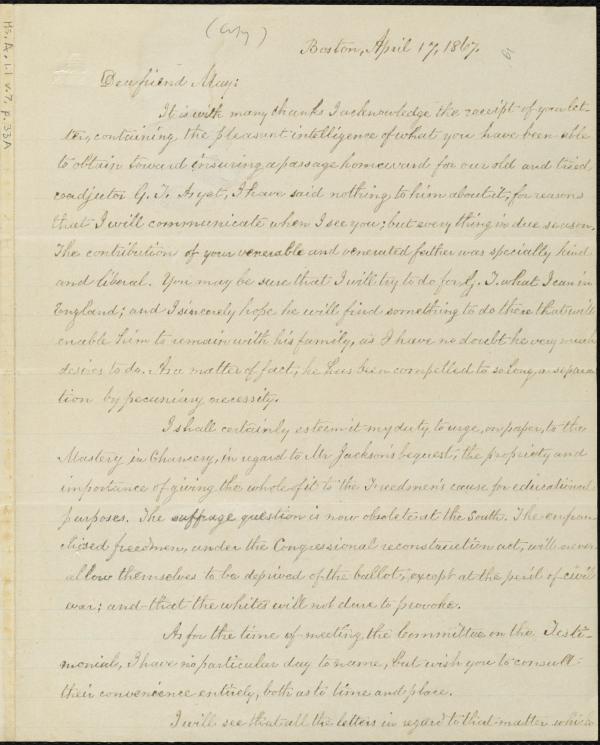 (Copy)
Boston, April 17, 1867.
Dear friend May:
It is with many thanks I acknowledge the receipt of your let-
ter, containing the pleasant intelligence of what you have been able
to obtain toward insuring a passage homeward for our old and tried
coadjutor G. T. As yet, I have said nothing to him about it, for reasons
that I will communicate when I see you; but every thing in due season.
The contribution of your venerable and venerated father was specially kind
and liberal. You may be sure that I will try to do for G. T. what I can in
England; and I sincerely hope he will find something to do there that will
enable him to remain with his family, as I have no doubt he very much
desires to do. As a matter of fact, he has been compelled to so long a separa-
tion by pecuniary necessity.
I shall certainly esteem it my duty to urge, on paper, to the
Mastery in Chancery, in regard to Mr Jackson's bequest, the propriety and
importance of giving the whole of it to the Freedmen's cause for educational
purposes. The suffrage question is now obsolete at the South. The enfran-
chised freedmen, under the Congressional reconstruction act, will never
allow themselves to be deprived of the ballot, except at the peril of civil
war; and that the whites will not dare to provoke.
As for the time of meeting the Committee on the Testi-
monial, I have no particular day to name, but wish you to consult
their convenience entirely, both as to time and place.
I will see that all the letters in regard to that matter which
Ms. A. 1.1 v. 7, p. 33A